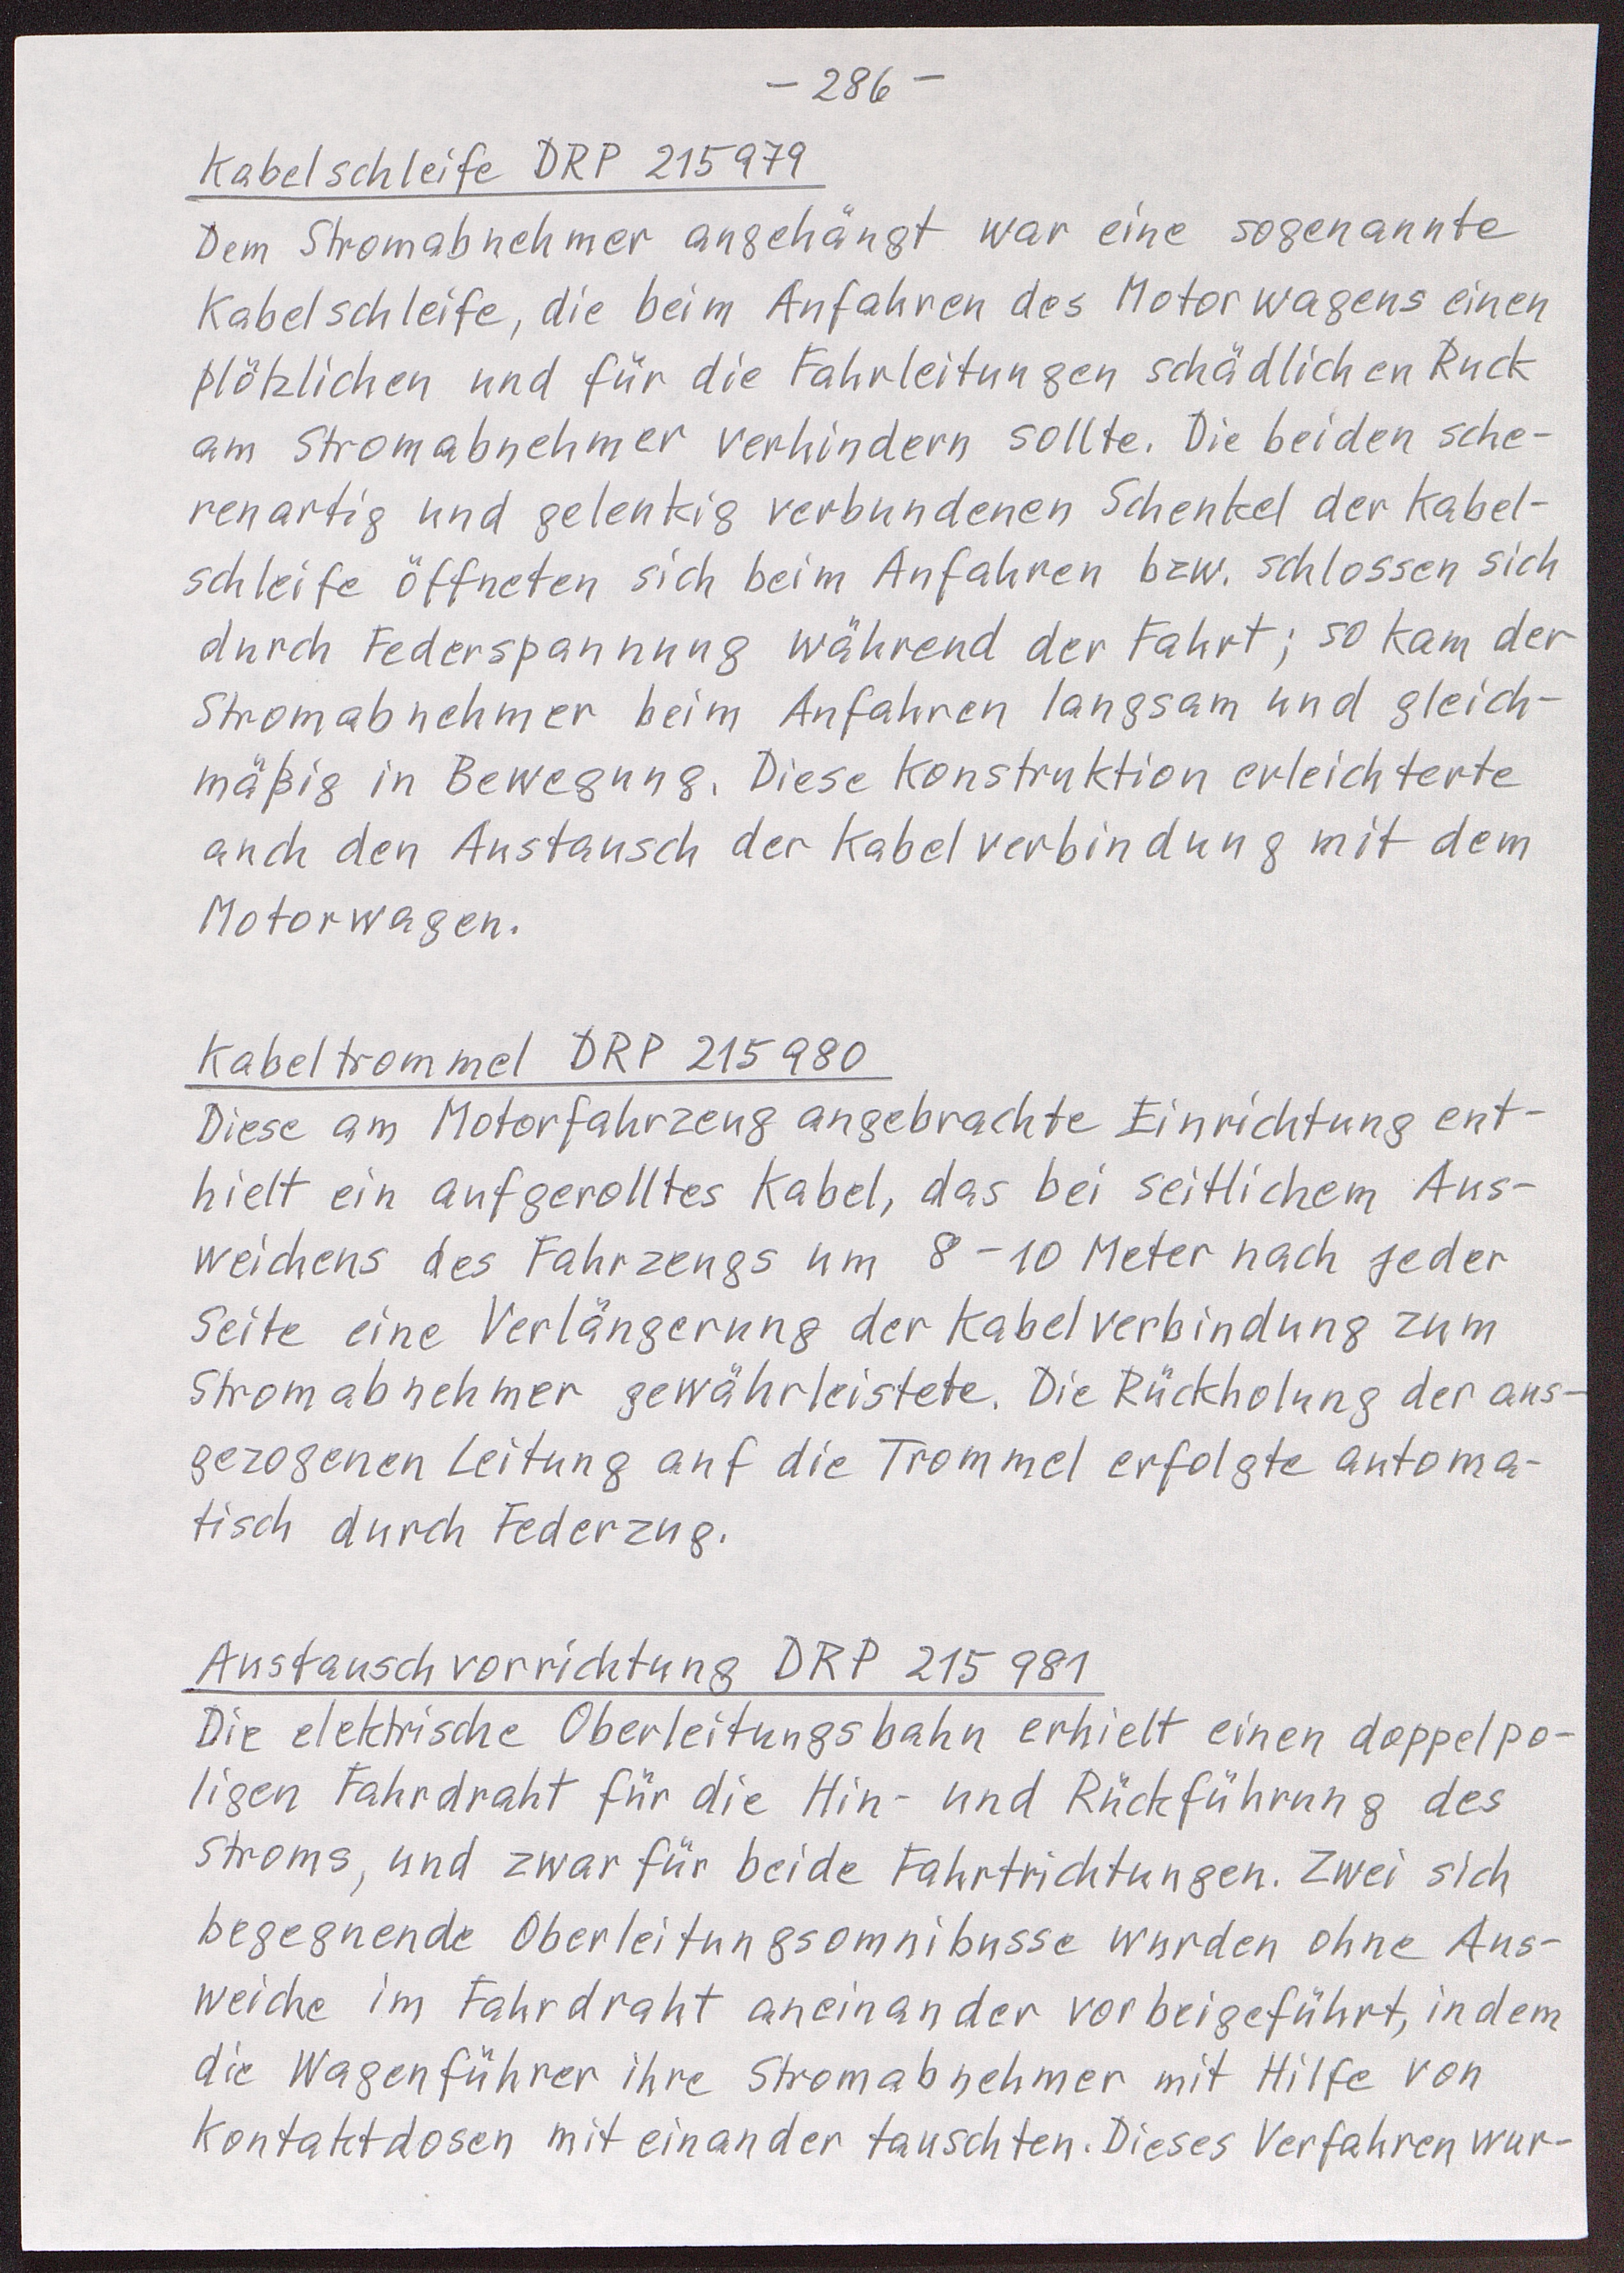 – 286 –
Kabelschleife DRP 215979
Dem Stromabnehmer angehängt war eine sogenannte
Kabelschleife, die beim Anfahren des Motorwagens einen
plötzlichen und für die Fahrleitungen schädlichen Ruck
am Stromabnehmer verhindern sollte. Die beiden sche-
renartig und gelenkig verbundenen Schenkel der Kabel-
schleife öffneten sich beim Anfahren bzw. schlossen sich
durch Federspannung während der Fahrt; so kam der
Stromabnehmer beim Anfahren langsam und gleich-
mäßig in Bewegung. Diese Konstruktion erleichterte
auch den Austausch der Kabelverbindung mit dem
Motorwagen.
Kabeltrommel DRP 215980
Diese am Motorfahrzeug angebrachte Einrichtung ent-
hielt ein aufgerolltes Kabel, das bei seitlichem Aus-
weichens des Fahrzeugs um 8–10 Meter nach jeder
Seite eine Verlängerung der Kabelverbindung zum
Stromabnehmer gewährleistete. Die Rückholung der aus-
gezogenen Leitung auf die Trommel erfolgte automa-
tisch durch Federzug.
Austauschvorrichtung DRP 215 981
Die elektrische Oberleitungsbahn erhielt einen doppelpo-
ligen Fahrdraht für die Hin- und Rückführung des
Stroms, und zwar für beide Fahrtrichtungen. Zwei sich
begegnende Oberleitungsomnibusse wurden ohne Aus-
weiche im Fahrdraht aneinander vorbeigeführt, indem
die Wagenführer ihre Stromabnehmer mit Hilfe von
Kontaktdosen miteinander tauschten. Dieses Verfahren wur-